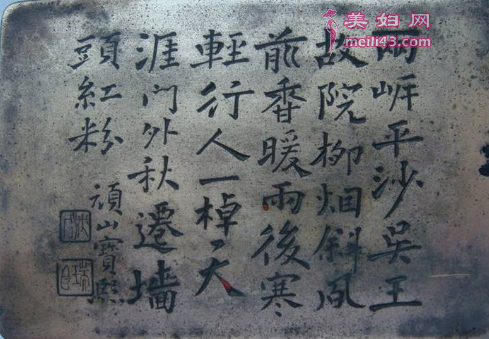 美妇网
meili43.com
兩岸平沙吳王
故院柳烟斜風
前香暖雨後寒
輕行人一棹天
涯門外秋遷墻
頭紅粉
頑山寶熙